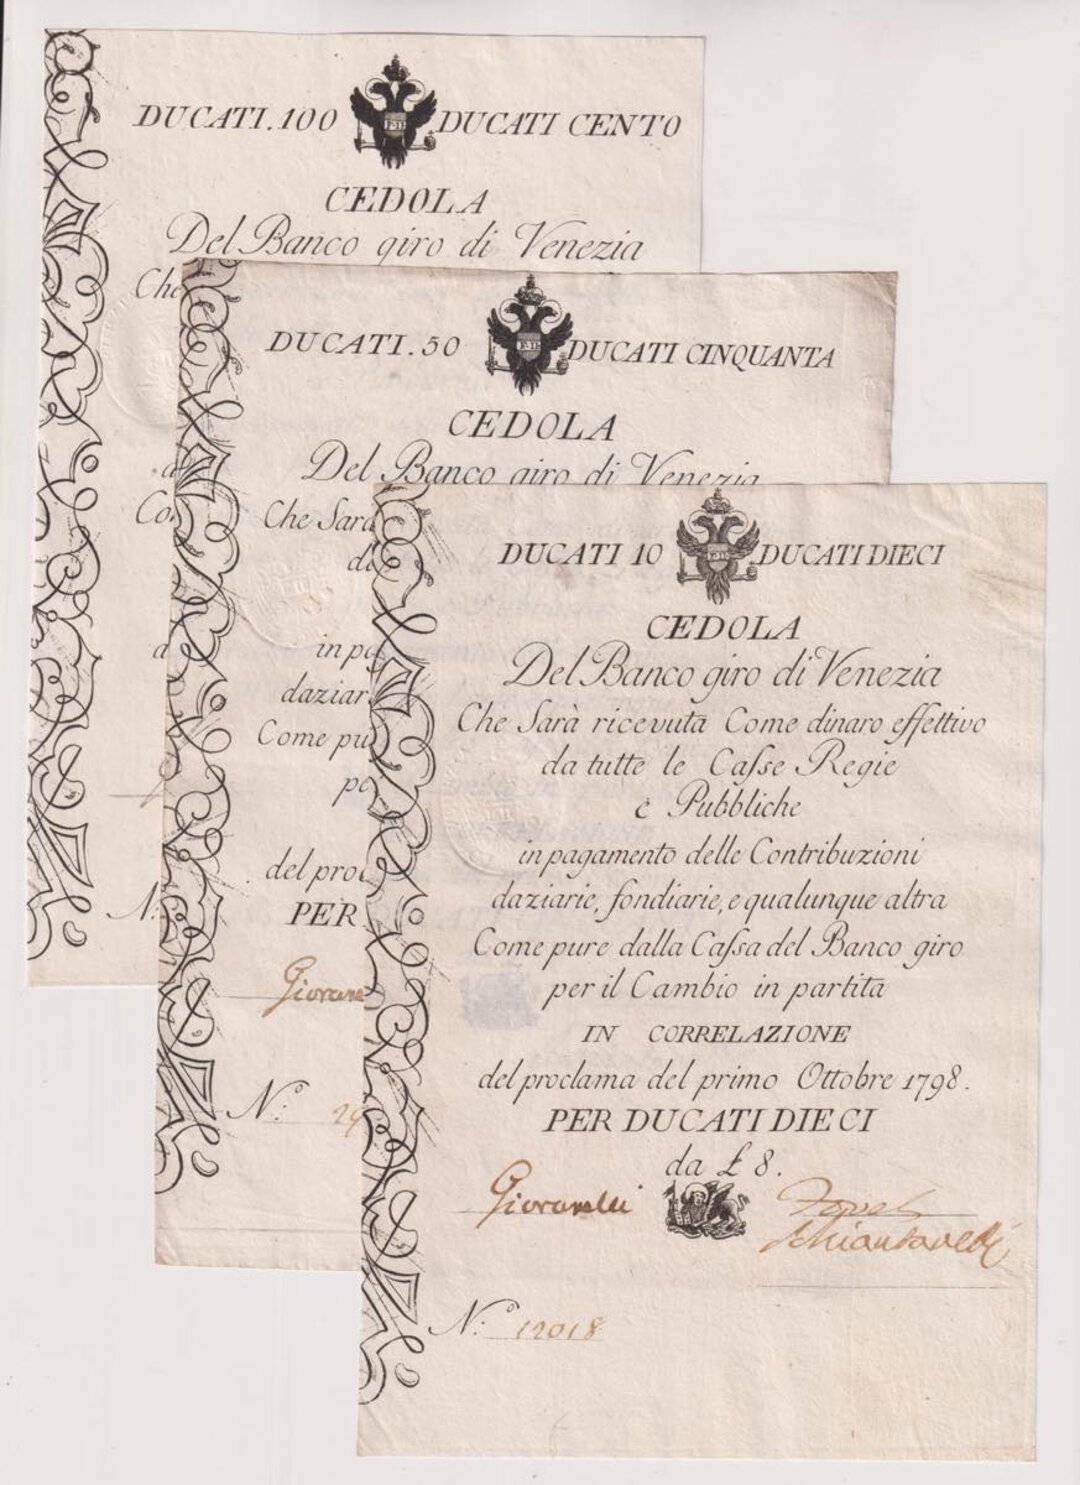 DUCATI.100 DUCATI CENTO
CEDOLA
Del Banco giro di Venezia
Che
Co
N:
DUCATI.50 F·II· DUCATI CINQUANTA
CEDOLA
Del Banco giro di Venezia
Che Sarà
di
in pa
daziar
Come pu
pe
del proc
PER
Giovane
N:º 29
DUCATI 10 DUCATI DIECI
CEDOLA
Del Banco giro di Venezia
Che Sarà ricevuta Come dinaro effettivo
da tutte le Caſse Regie
e Pubbliche
in pagamento delle Contribuzioni
daziarie, fondiarie, e qualunque altra
Come pure dalla Caſsa del Banco giro
per il Cambio in partita
IN CORRELAZIONE
del proclama del primo Ottobre 1798.
PER DUCATI DIECI
da £ 8.
Giovanelli
N:º 12018